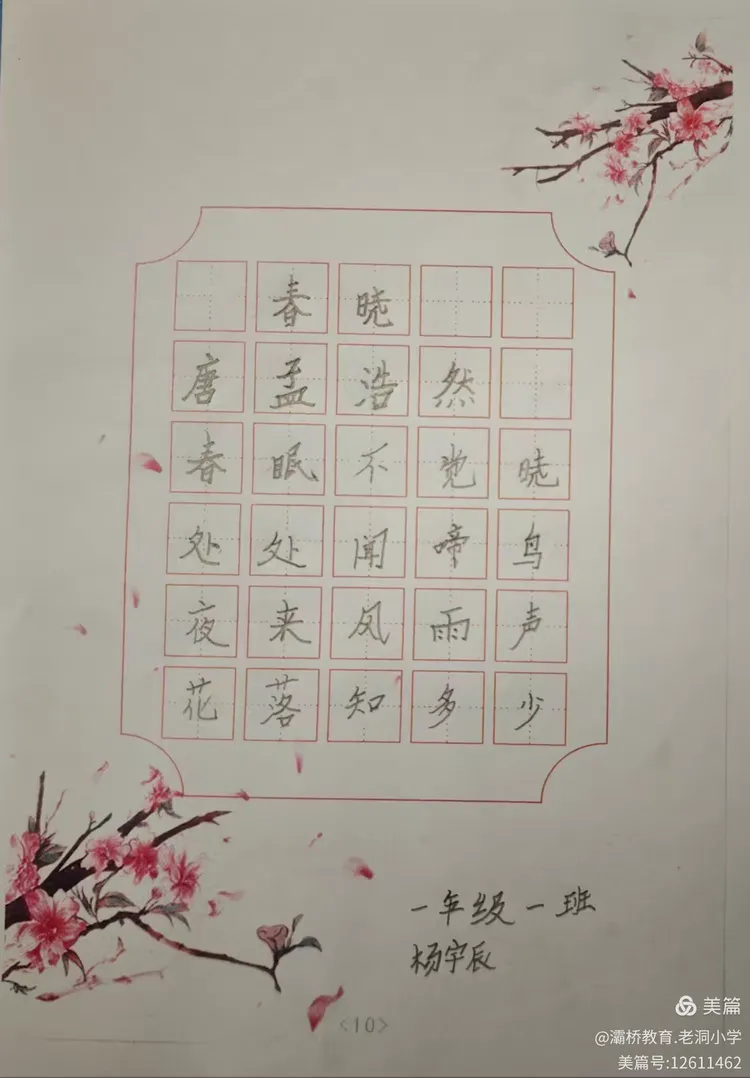 春晓
唐孟浩然
春眠不觉晓
处处闻啼鸟
夜来风雨声
花落知多少
一年级一班
杨宇辰
<10>
美篇
@灞桥教育.老洞小学
美篇号:12611462